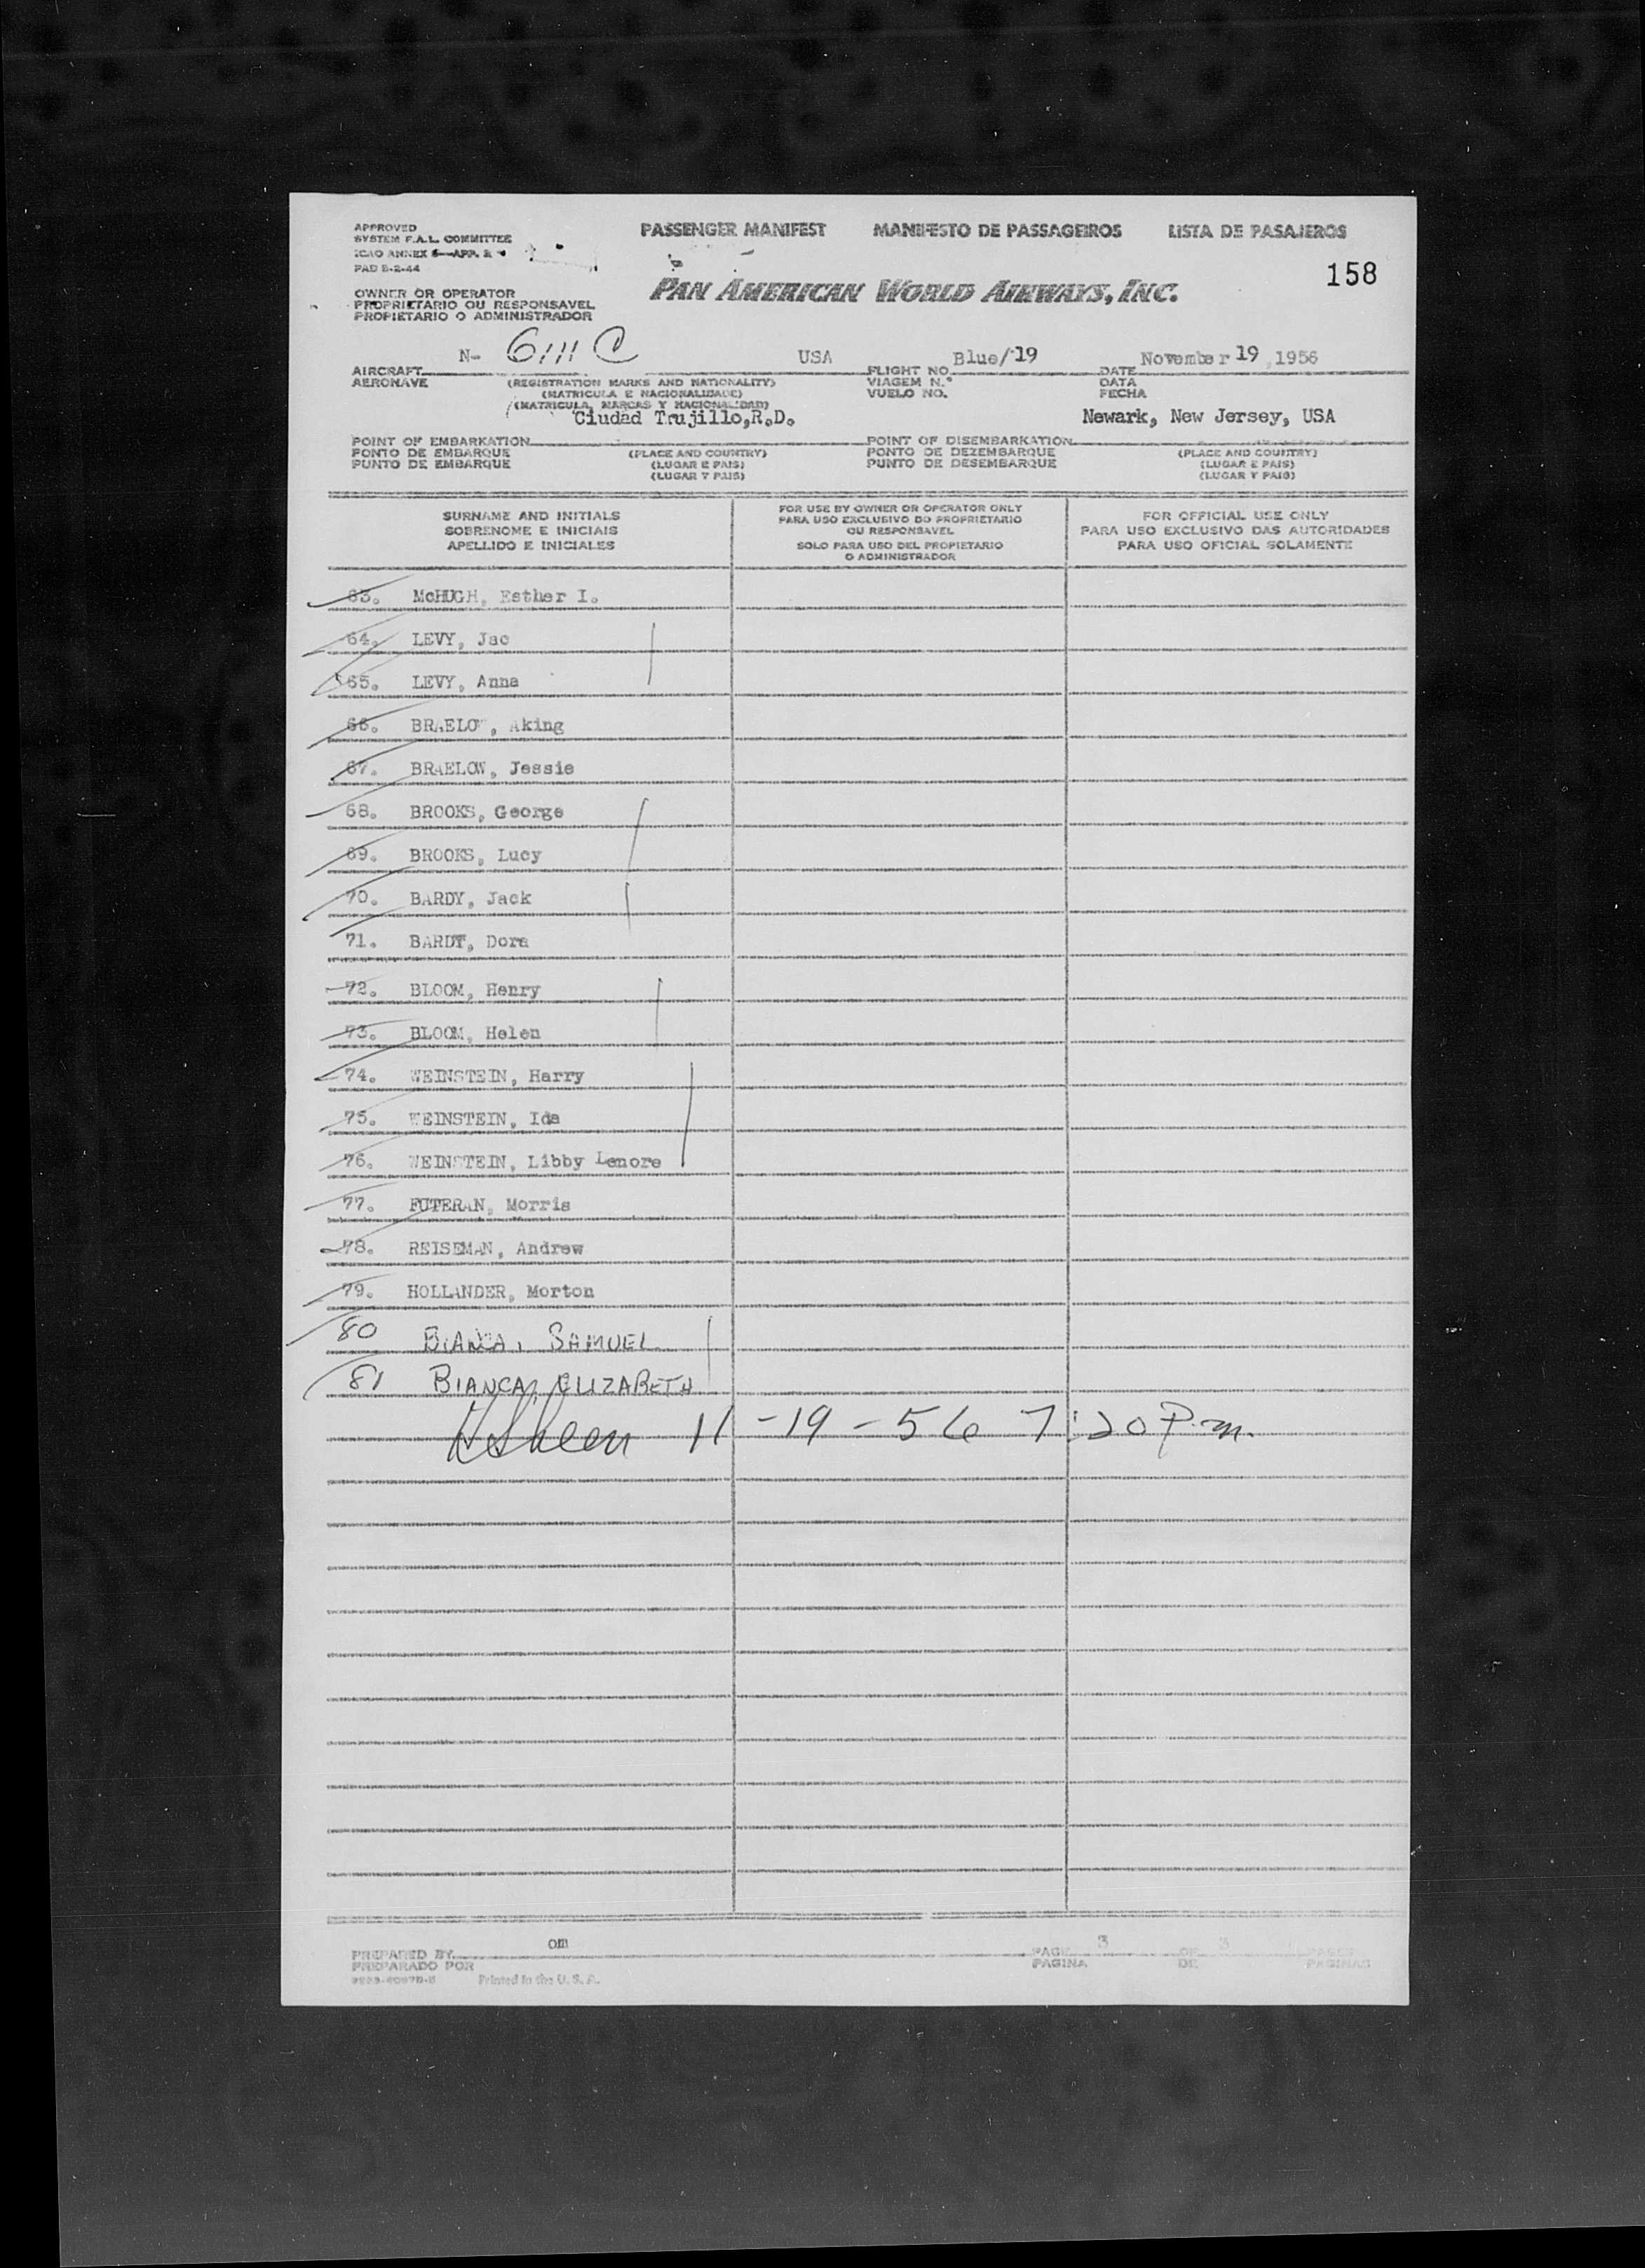 APPROVED
SYSTEM F.A.L. COMMITTEE
ICAO ANNEX
PAD 8-2-44
PASSENGER MANIFEST MANIFESTO DE PASSAGEIROS LISTA DE PASAJEROS
158
OWNER OR OPERATOR
PROPRIETARIO OU RESPONSAVEL
PROPIETARIO O ADMINISTRADOR
PAN AMERICAN WORLD AIRWAYS, INC.
N- 6111 C USA Blue/19 November 19, 1956
AIRCRAFT FLIGHT NO. DATE
AERONAVE (REGISTRATION MARKS AND NATIONALITY) VIAGEM N.º DATA
(MATRICULA E NACIONALIDADE) VUELO NO. FECHA
(MATRICULA, MARCAS Y NACIONALIDAD)
Ciudad Trujillo,R.D. Newark, New Jersey, USA
POINT OF EMBARKATION POINT OF DISEMBARKATION
PONTO DE EMBARQUE (PLACE AND COUNTRY) PONTO DE DEZEMBARQUE (PLACE AND COUNTRY)
PUNTO DE EMBARQUE (LUGAR E PAIS) PUNTO DE DESEMBARQUE (LUGAR E PAIS)
(LUGAR Y PAIS) (LUGAR Y PAIS)
SURNAME AND INITIALS
SOBRENOME E INICIAIS
APELLIDO E INICIALES
FOR USE BY OWNER OR OPERATOR ONLY
PARA USO EXCLUSIVO DO PROPRIETARIO
OU RESPONSAVEL
SOLO PARA USO DEL PROPIETARIO
O ADMINISTRADOR
FOR OFFICIAL USE ONLY
PARA USO EXCLUSIVO DAS AUTORIDADES
PARA USO OFICIAL SOLAMENTE
63. McHUGH, Esther I.
64. LEVY, Jac
65. LEVY, Anna
66. BRAELOW, Aking
67. BRAELOW, Jessie
68. BROOKS, George
69. BROOKS, Lucy
70. BARDY, Jack
71. BARDY, Dora
72. BLOOM, Henry
73. BLOOM, Helen
74. WEINSTEIN, Harry
75. WEINSTEIN, Ida
76. WEINSTEIN, Libby Lenore
77. FUTERAN, Morris
78. REISEMAN, Andrew
79. HOLLANDER, Morton
80 BIANCA, SAMUEL
81 BIANCA, ELIZABETH
11-19-56 7:20 P.m.
PREPARED BY om PAGE 3 OF 3 PAGES
PREPARADO POR PAGINA DE PAGINAS
Printed in the U. S. A.